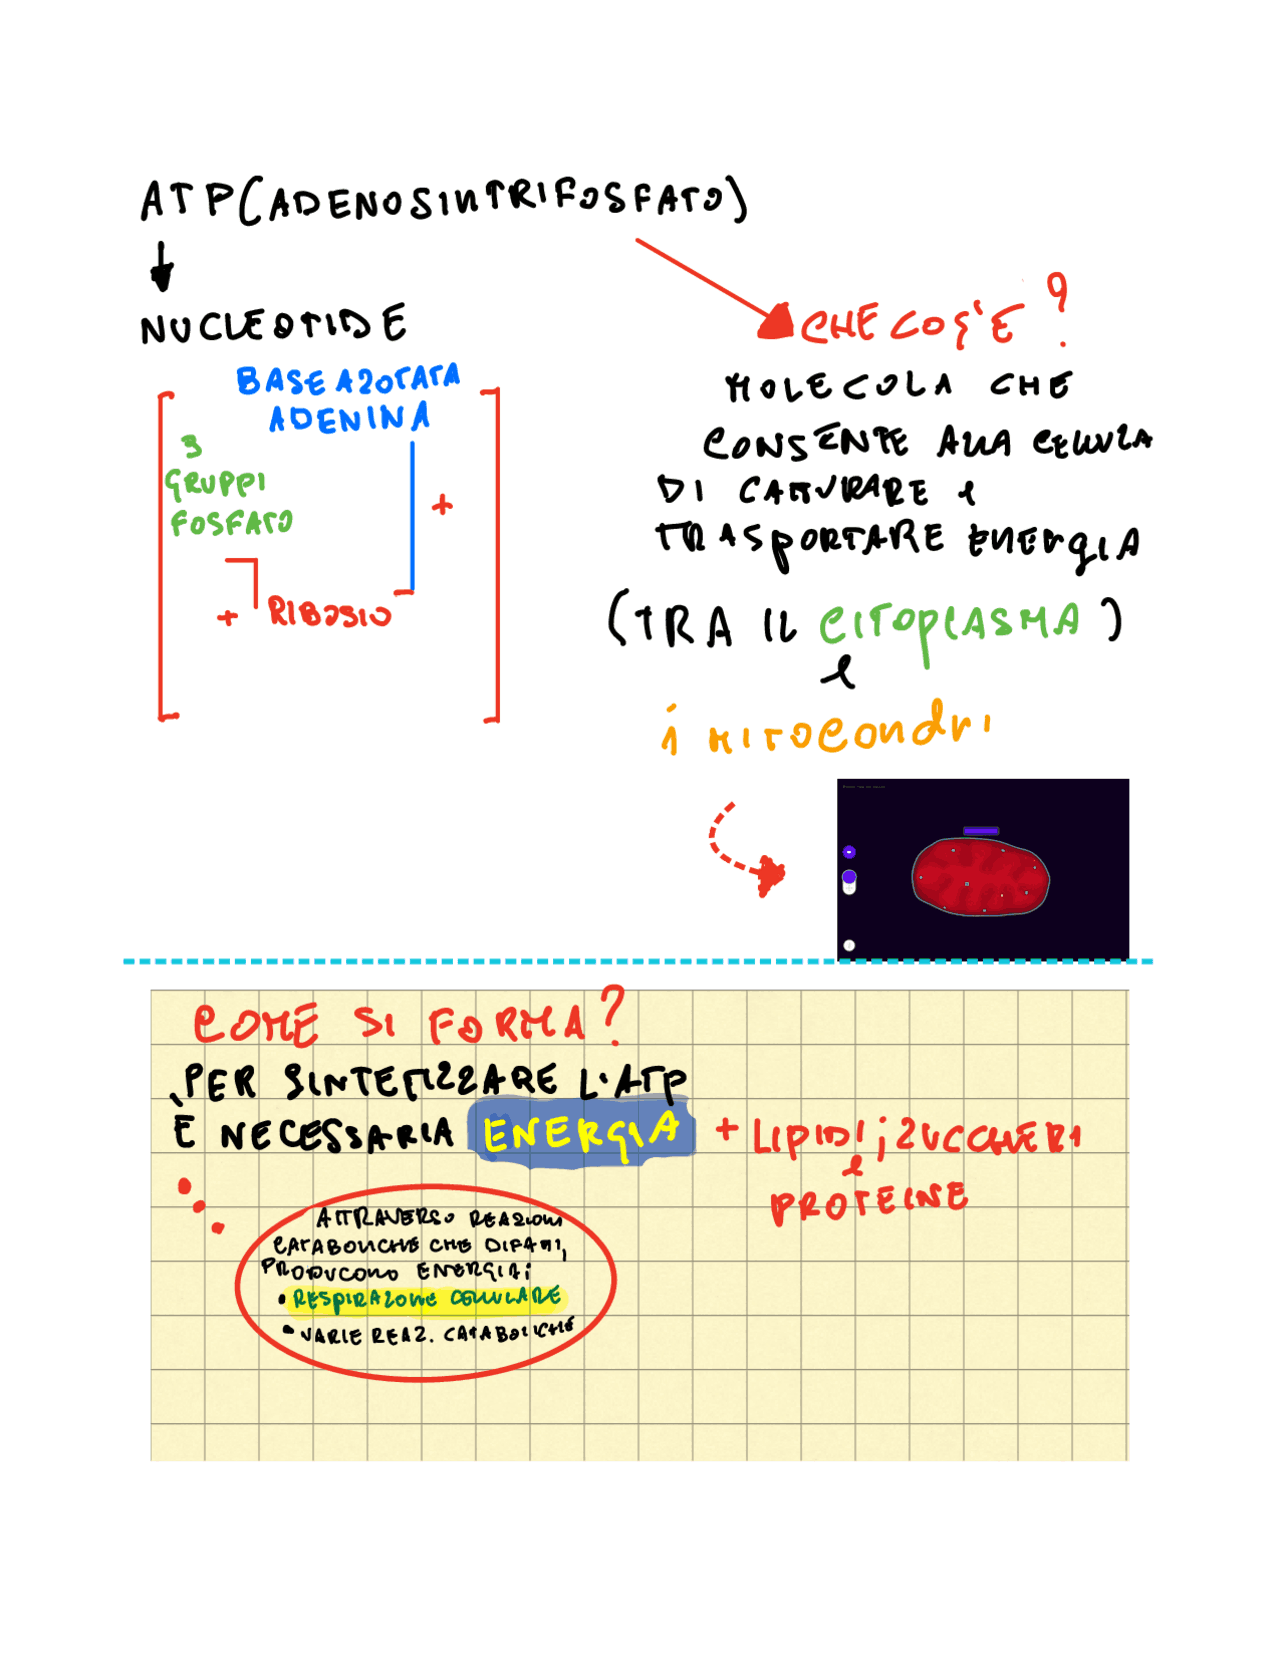 ATP(ADENOSINTRIFOSFATO)
NUCLEOTIDE
BASE AZOTATA
ADENINA
3
GRUPPI
FOSFATO
+
+ RIBOSIO
CHE COS'È?
MOLECOLA CHE
CONSENTE ALLA CELLULA
DI CATTURARE e
TRASPORTARE ENERGIA
(TRA IL CITOPLASMA)
e
i MITOCONDRI
COME SI FORMA?
PER SINTETIZZARE L'ATP
È NECESSARIA ENERGIA + LIPIDI; ZUCCHERI
e
PROTEINE
ATTRAVERSO REAZIONI
CATABOLICHE CHE DIFATTI,
PRODUCONO ENERGIA:
• RESPIRAZIONE CELLULARE
• VARIE REAZ. CATABOLICHE